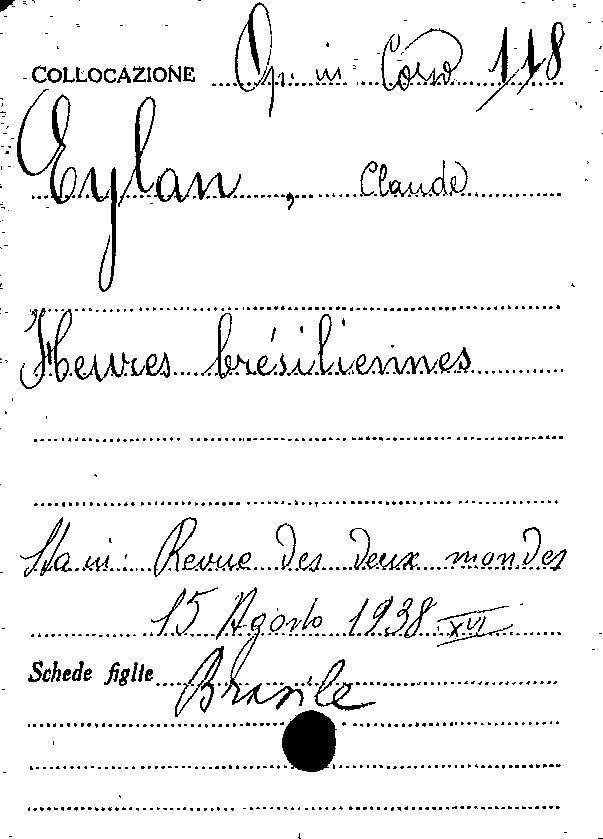 COLLOCAZIONE Op. in Corso 118
Eylan, Claude
Heures brésiliennes
Sta in: Revue des deux mondes
15 Agosto 1938 XVI
Schede figlie Brasile